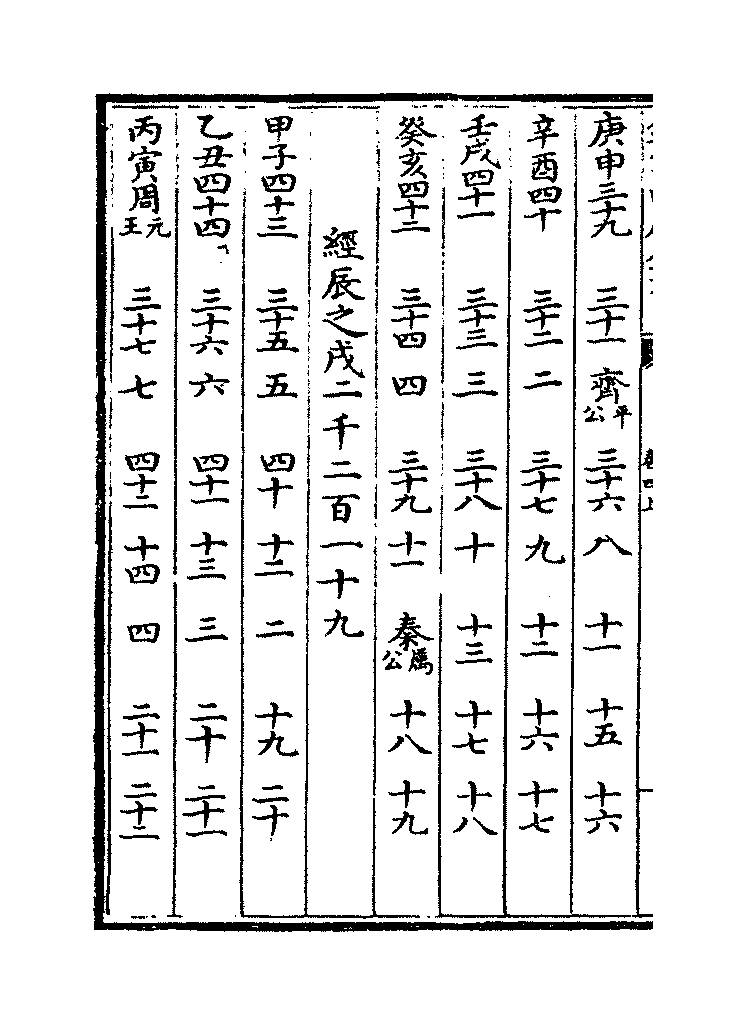 庚申三十九 三十一 齊平公 三十六 八 十一 十五 十六
辛酉四十 三十二 二 三十七 九 十二 十六 十七
壬戌四十一 三十三 三 三十八 十 十三 十七 十八
癸亥四十二 三十四 四 三十九 十一 秦厲公 十八 十九
經辰之戌二千二百一十九
甲子四十三 三十五 五 四十 十二 二 十九 二十
乙丑四十四 三十六 六 四十一 十三 三 二十 二十一
丙寅周元王 三十七 七 四十二 十四 四 二十一 二十二